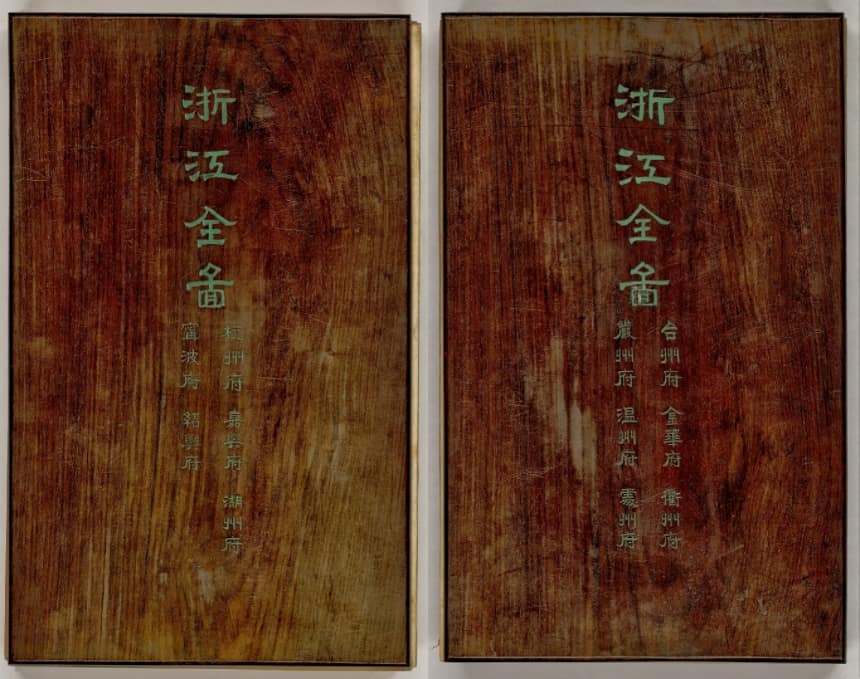 浙江全啚
杭州府 嘉興府 湖州府
甯波府 紹興府
浙江全圖
台州府 金華府 衢州府
嚴州府 温州府 處州府